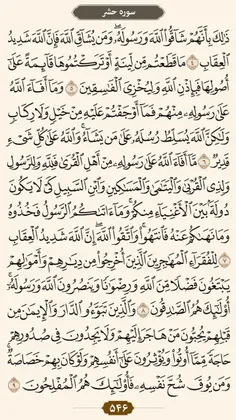 سوره حشر
ذَٰلِكَ بِأَنَّهُمْ شَاقُّوا۟ ٱللَّهَ وَرَسُولَهُۥ وَمَن يُشَاقِّ ٱللَّهَ فَإِنَّ ٱللَّهَ شَدِيدُ
ٱلْعِقَابِ ۝٤ مَا قَطَعْتُم مِّن لِّينَةٍ أَوْ تَرَكْتُمُوهَا قَآئِمَةً عَلَىٰٓ
أُصُولِهَا فَبِإِذْنِ ٱللَّهِ وَلِيُخْزِىَ ٱلْفَٰسِقِينَ ۝٥ وَمَآ أَفَآءَ ٱللَّهُ
عَلَىٰ رَسُولِهِۦ مِنْهُمْ فَمَآ أَوْجَفْتُمْ عَلَيْهِ مِنْ خَيْلٍ وَلَا رِكَابٍ
وَلَٰكِنَّ ٱللَّهَ يُسَلِّطُ رُسُلَهُۥ عَلَىٰ مَن يَشَآءُ وَٱللَّهُ عَلَىٰ كُلِّ شَىْءٍ
قَدِيرٌ ۝٦ مَّآ أَفَآءَ ٱللَّهُ عَلَىٰ رَسُولِهِۦ مِنْ أَهْلِ ٱلْقُرَىٰ فَلِلَّهِ وَلِلرَّسُولِ
وَلِذِى ٱلْقُرْبَىٰ وَٱلْيَتَٰمَىٰ وَٱلْمَسَٰكِينِ وَٱبْنِ ٱلسَّبِيلِ كَىْ لَا يَكُونَ
دُولَةًۢ بَيْنَ ٱلْأَغْنِيَآءِ مِنكُمْ وَمَآ ءَاتَىٰكُمُ ٱلرَّسُولُ فَخُذُوهُ
وَمَا نَهَىٰكُمْ عَنْهُ فَٱنتَهُوا۟ وَٱتَّقُوا۟ ٱللَّهَ إِنَّ ٱللَّهَ شَدِيدُ ٱلْعِقَابِ
۝٧ لِلْفُقَرَآءِ ٱلْمُهَٰجِرِينَ ٱلَّذِينَ أُخْرِجُوا۟ مِن دِيَٰرِهِمْ وَأَمْوَٰلِهِمْ
يَبْتَغُونَ فَضْلًا مِّنَ ٱللَّهِ وَرِضْوَٰنًا وَيَنصُرُونَ ٱللَّهَ وَرَسُولَهُۥٓ
أُو۟لَٰٓئِكَ هُمُ ٱلصَّٰدِقُونَ ۝٨ وَٱلَّذِينَ تَبَوَّءُو ٱلدَّارَ وَٱلْإِيمَٰنَ مِن
قَبْلِهِمْ يُحِبُّونَ مَنْ هَاجَرَ إِلَيْهِمْ وَلَا يَجِدُونَ فِى صُدُورِهِمْ
حَاجَةً مِّمَّآ أُوتُوا۟ وَيُؤْثِرُونَ عَلَىٰٓ أَنفُسِهِمْ وَلَوْ كَانَ بِهِمْ خَصَاصَةٌ
وَمَن يُوقَ شُحَّ نَفْسِهِۦ فَأُو۟لَٰٓئِكَ هُمُ ٱلْمُفْلِحُونَ ۝٩
۵۴۶